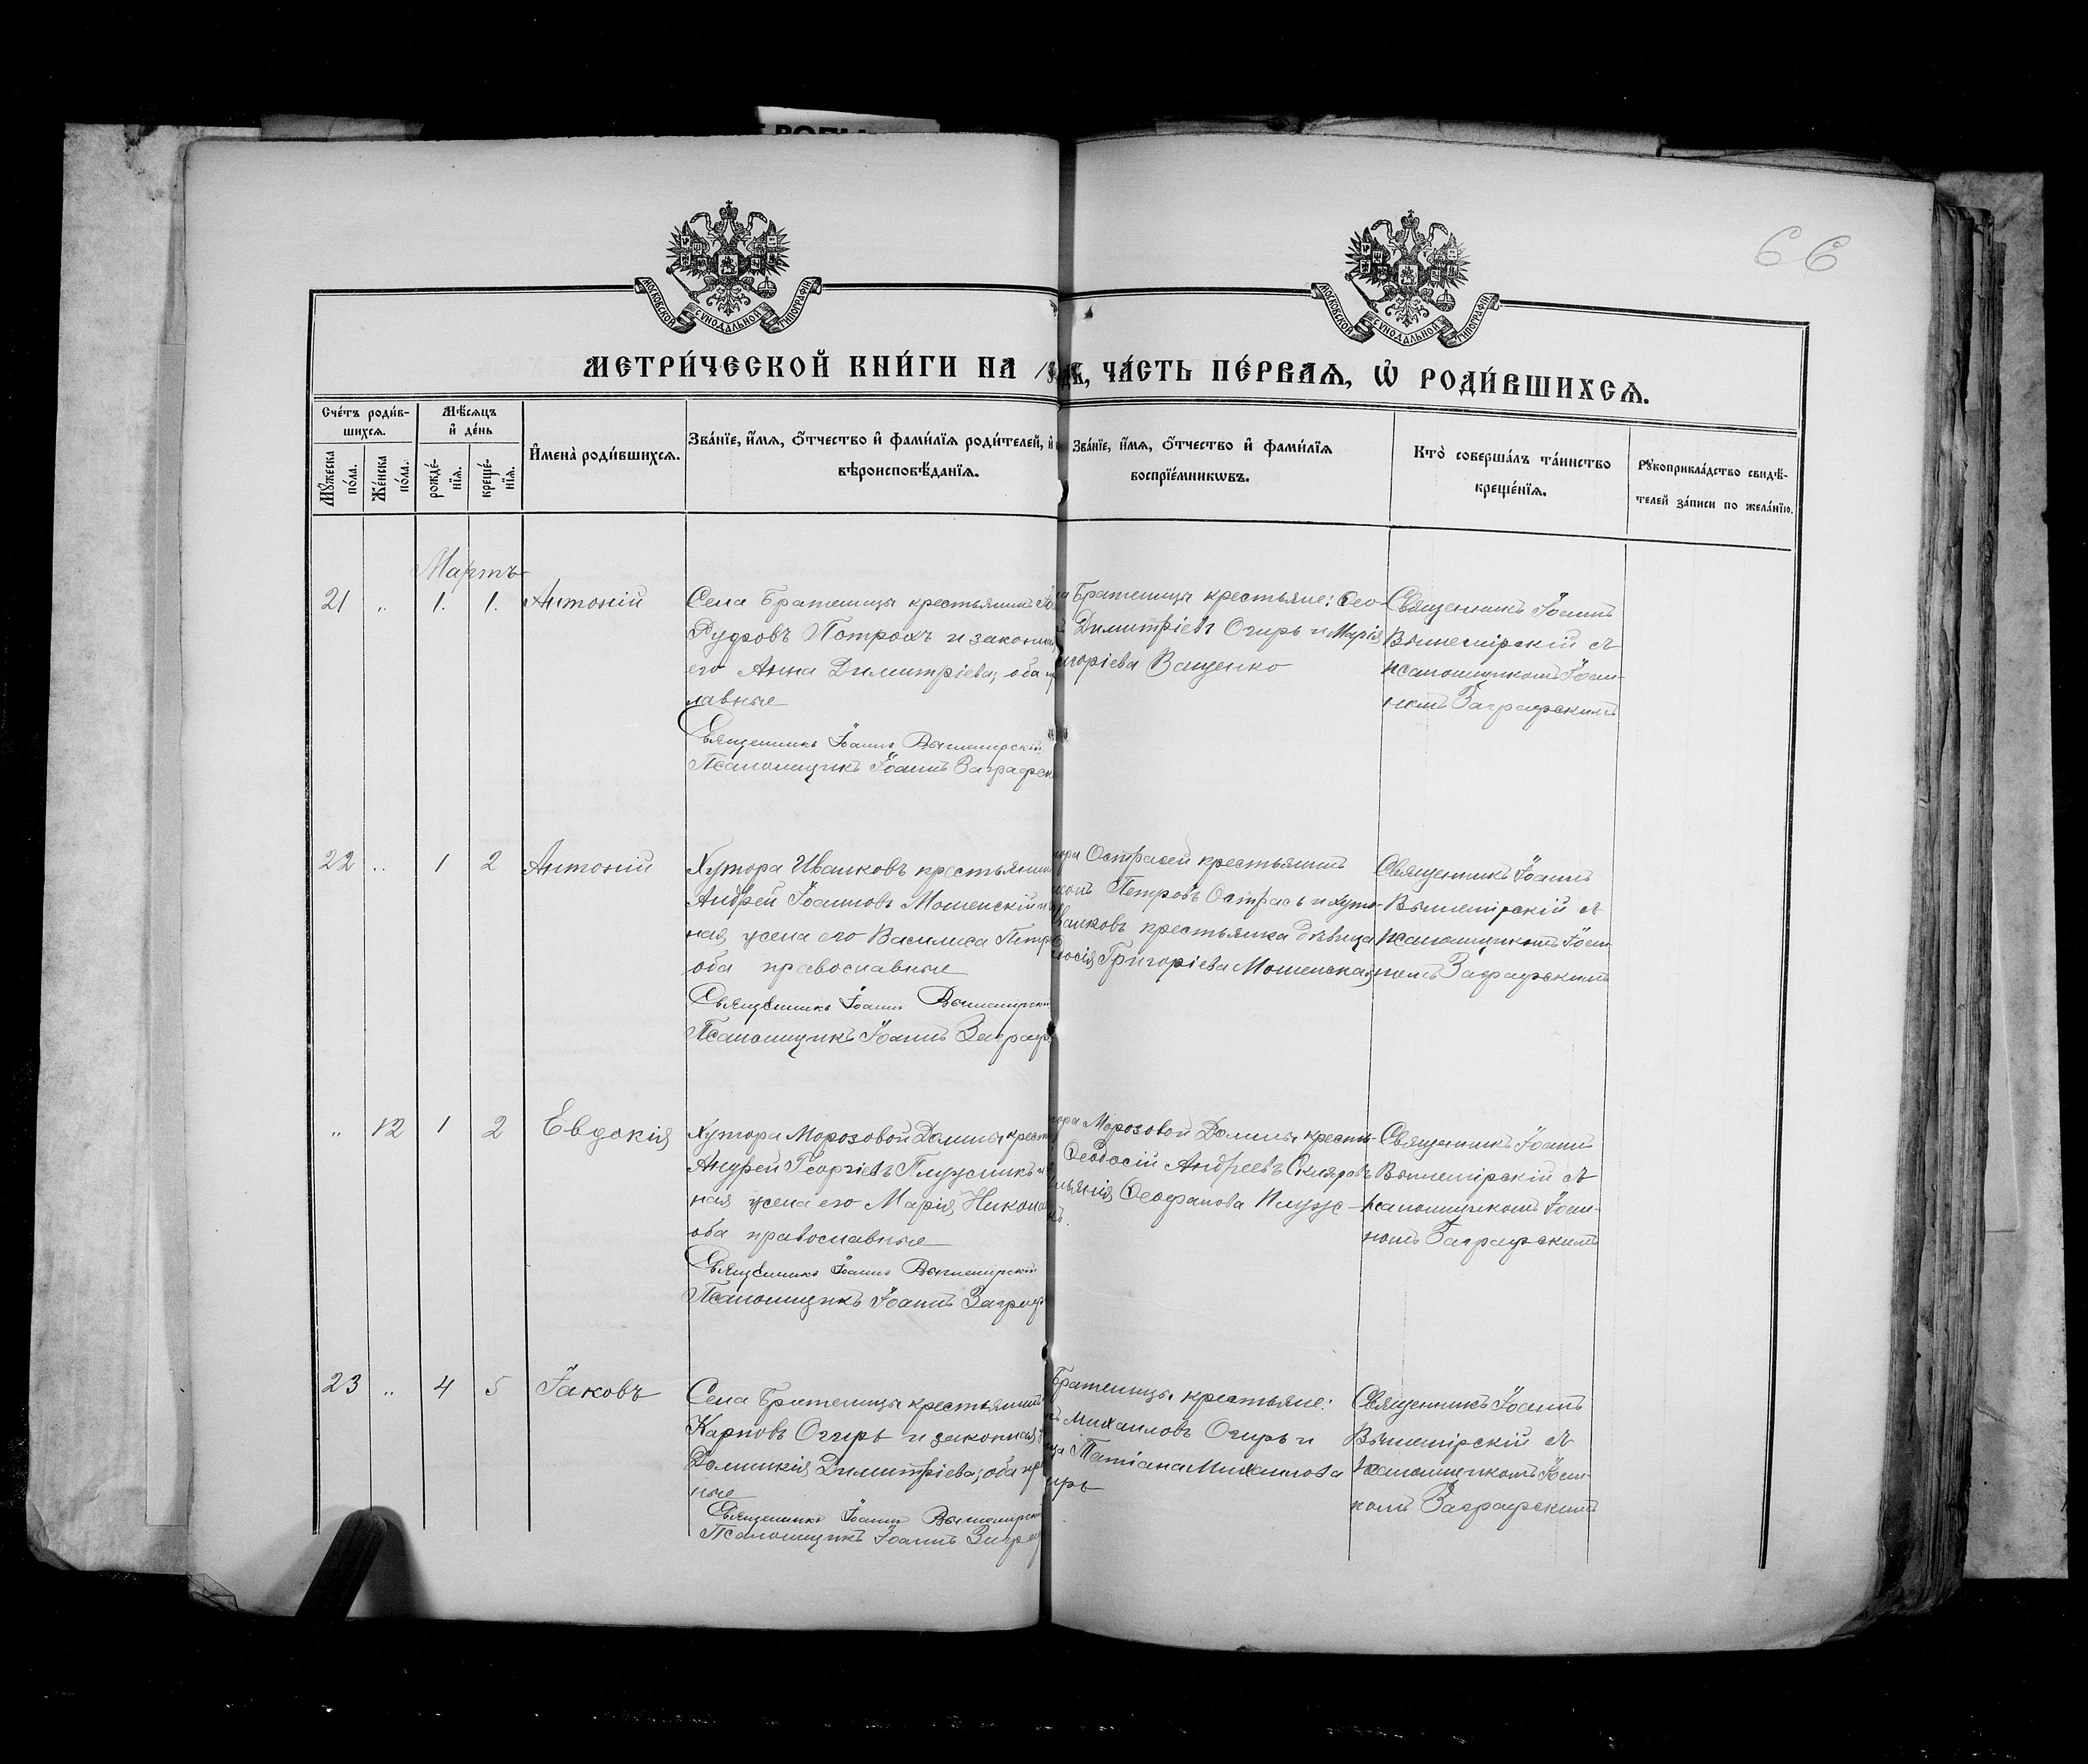 66
МОСКОВСКОЙ СѴНОДАЛЬНОЙ ТИПОГРАФІИ
МОСКОВСКОЙ СѴНОДАЛЬНОЙ ТИПОГРАФІИ
МЕТРИ́ЧЕСКОЙ КНИ́ГИ НА 1
ЧА́СТЬ ПЕ́РВАѦ, Ѿ РОДИ́ВШИХСѦ.
Сче́тъ роди́в-
шихсѧ.
Мꙋ́жеска по́ла.
Же́нска по́ла.
Мѣ́сѧцъ
и҆ де́нь
рожде́-
нїѧ.
креще́-
нїѧ.
И҆мена̀ роди́вшихсѧ.
Зва́нїе, и҆́мѧ, ѻ҆́тчество и҆ фами́лїѧ роди́телей, и҆
вѣроисповѣ́данїѧ.
Зва́нїе, и҆́мѧ, ѻ҆́тчество и҆ фами́лїѧ
воспрїе́мникѡвъ.
Кто̀ соверша́лъ та́инство
креще́нїѧ.
Рꙋкоприкла́дство свидѣ́-
телей за́писи по жела́нїю.
Мартъ
21 „ 1. 1. Антоній
Села Братешцы крестьянинъ
Потрохъ и законная
его Анна Димитріева, оба
лавные
Священникъ Іоаннъ Вышемірскій
Псаломщикъ Іоаннъ Заграфск
Братешцы крестьяне: Ѳео-
Димитріевъ Огирь и Марія
игоріева Ващенко
Священникъ Іоаннъ
Вышемірскій съ
псаломщикомъ Іоан-
номъ Заграфскимъ
22 „ 1 2 Антоній
Хутора Иванковъ крестьянинъ
Андрей Іоанновъ Мошенскій и
ная жена его Василиса Петр
оба православные
Священникъ Іоаннъ Вышемірскі
Псаломщикъ Іоаннъ Заграф
Остпасей крестьянинъ
Петровъ Остпась и хуто-
Иванковъ крестьянка дѣвица
досія Григоріева Мошенская
Священникъ Іоаннъ
Вышемірскій съ
псаломщикомъ Іоан
номъ Заграфскимъ
„ 12 1 2 Евдокія
Хутора Морозовой Долины крест
Андрей Георгіевъ Плужникъ и
ная жена его Марія Никола
оба православные
Священникъ Іоаннъ Вышемірскій
Псаломщикъ Іоаннъ Заграф
ора Морозовой Долины крестья-
Ѳеодосій Андреевъ Скляровъ
ульянія Ѳеофанова Плуж-
къ.
Священникъ Іоаннъ
Вышемірскій съ
псаломщикомъ Іоан-
номъ Заграфскимъ
23 „ 4 5 Іаковъ
Села Братешцы крестьянинъ
Карповъ Огирь и законная
Домникія Димитріева; оба пра
ные
Священникъ Іоаннъ Вышемірскі
Псаломщикъ Іоаннъ Заграф
Братешцы крестьяне:
Михаиловъ Огирь и
ца Татіана Михаилова
ирь
Священникъ Іоаннъ
Вышемірскій съ
псаломщикомъ Іоан-
номъ Заграфскимъ